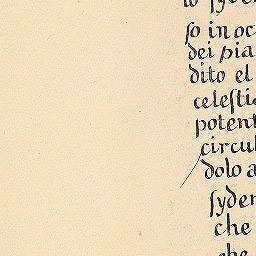 ſo in oc
dei pia
dito el
celeſti
potent
circul
dolo a
ſyder
che
che